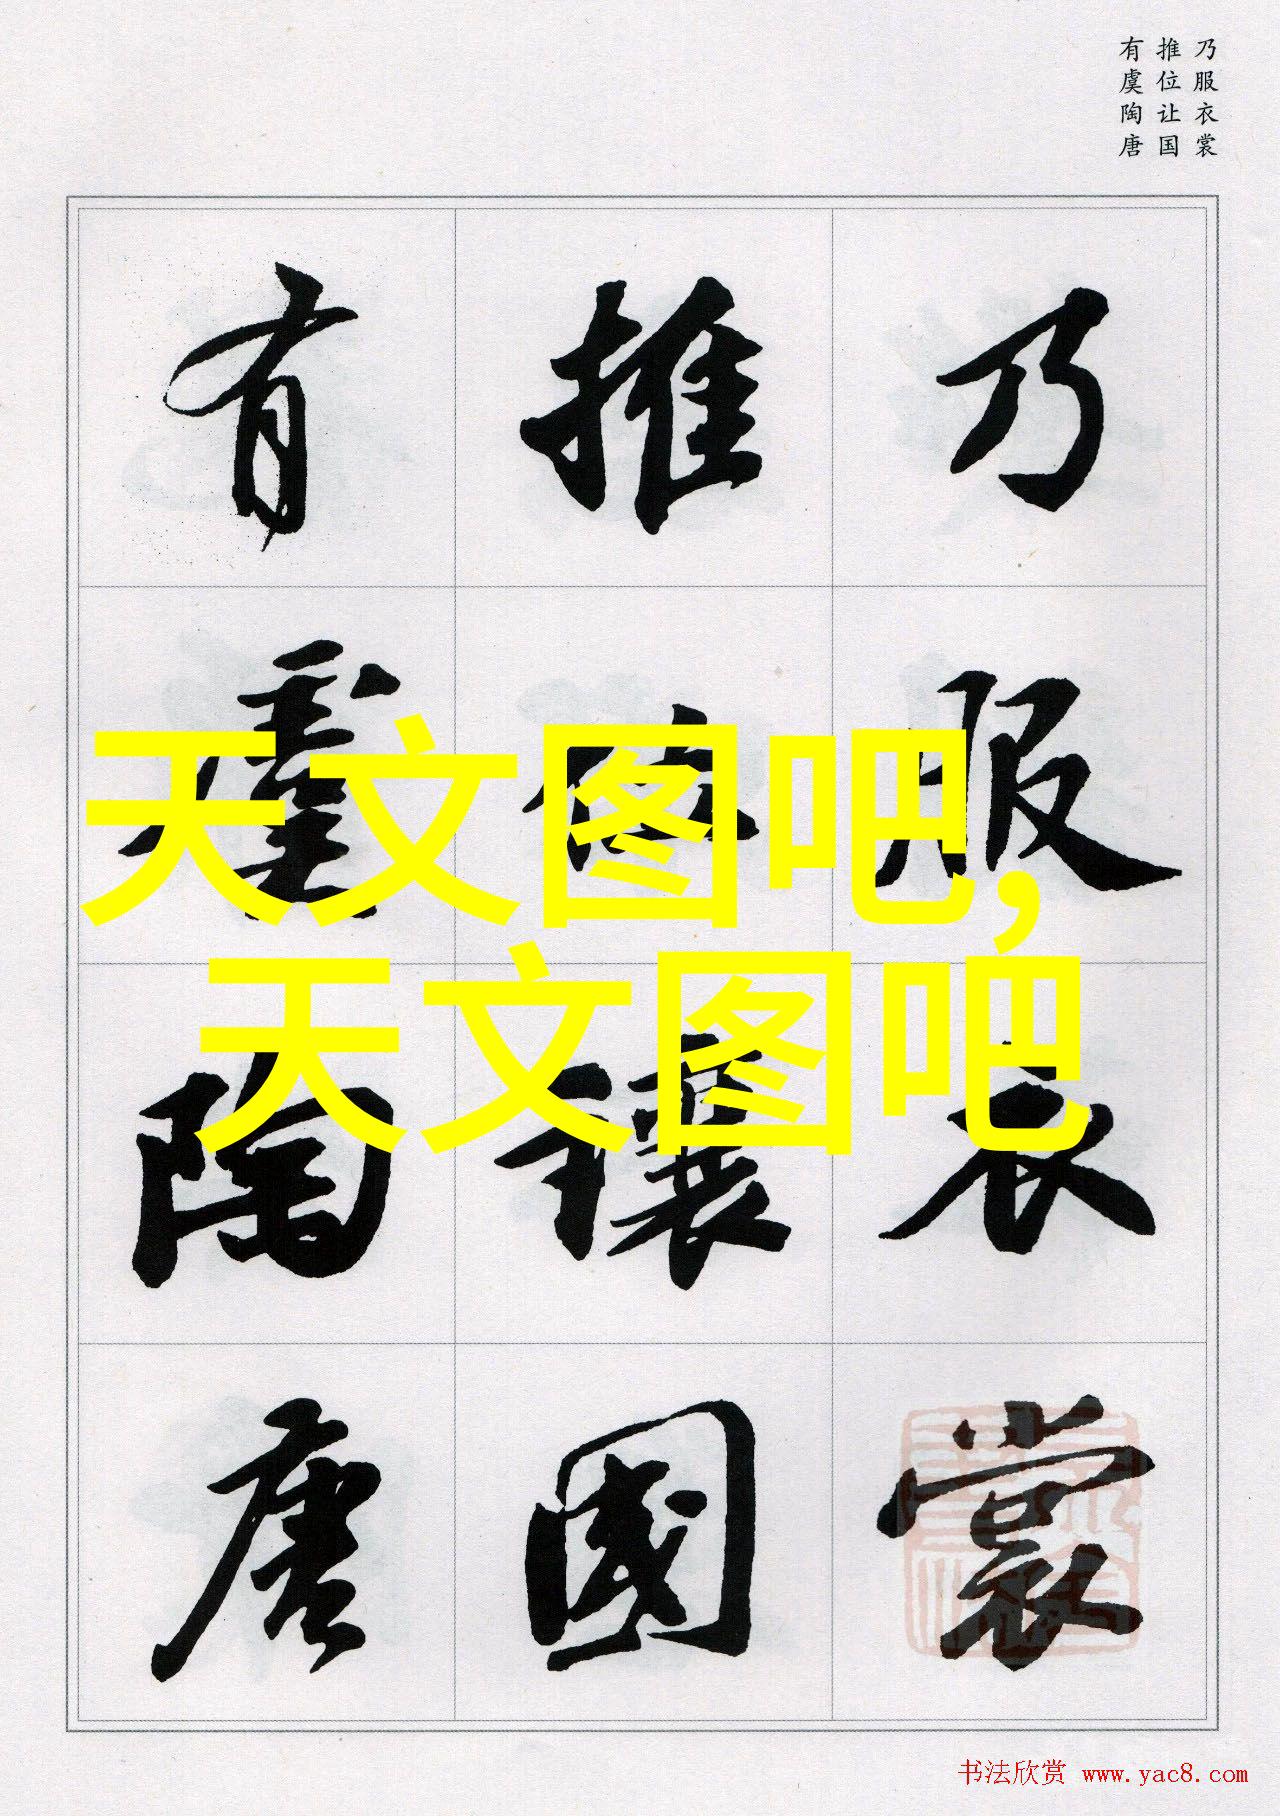 乃服衣裳
推位让国
有虞陶唐
乃服衣裳
推位讓國
有虞陶唐
天文图吧,
天文图吧
书法欣赏 www.yac8.com